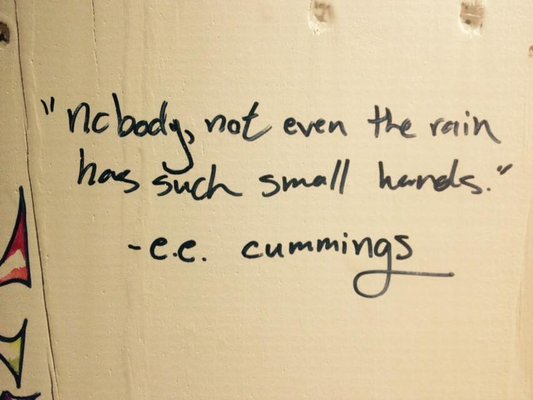 "nobody, not even the rain
has such small hands."
-e.e. cummings